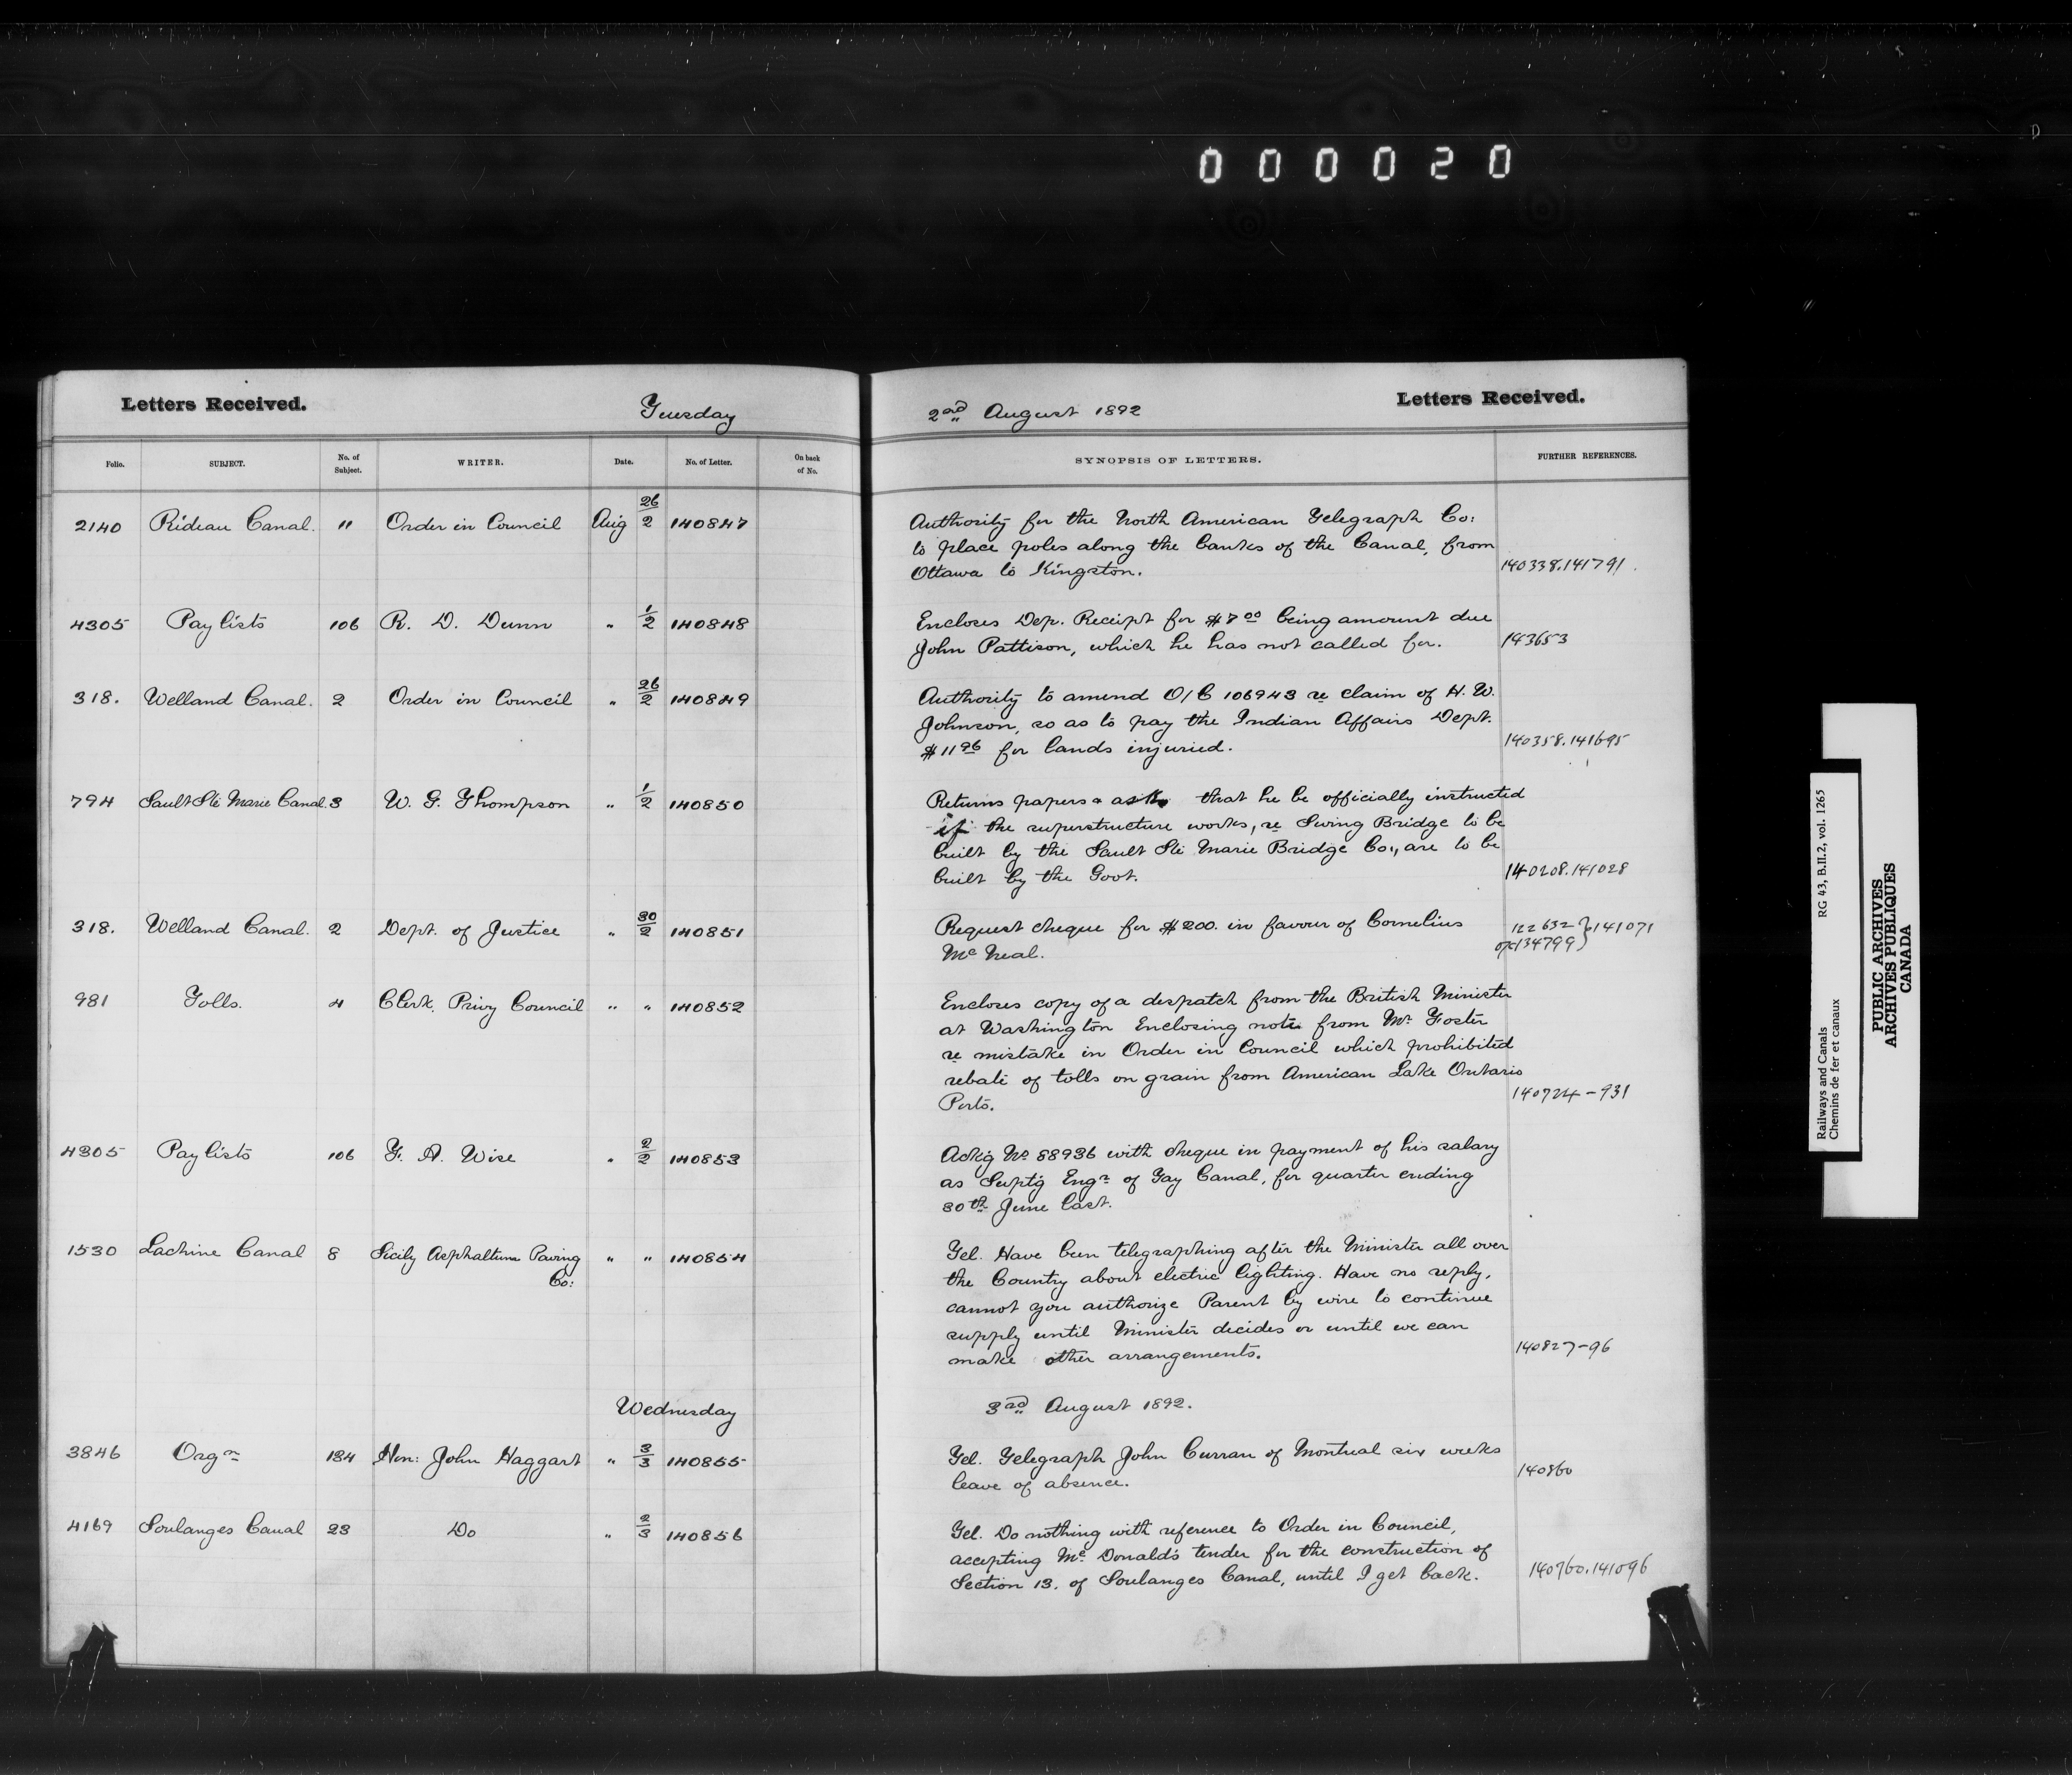 000020
Letters Received.
Tuesday
2nd August 1892
Letters Received.
Folio. SUBJECT. No. of Subject. WRITER. Date. No. of Letter. On back of No. SYNOPSIS OF LETTERS. FURTHER REFERENCES.
2140 Rideau Canal. 11 Order in Council Aug 26/2 140847
Authority for the North American Telegraph Co:
to place poles along the banks of the Canal, from
Ottawa to Kingston. 140338.141791.
4305 Pay lists 106 R. D. Dunn " 1/2 140848
Encloses Dep. Receipt for $7.00 being amount due
John Pattison, which he has not called for. 143653
318. Welland Canal. 2 Order in Council " 26/2 140849
Authority to amend O/C 106943 re claim of H. W.
Johnson, so as to pay the Indian Affairs Dept.
$11.96 for lands injuried. 140358.141695
794 Sault Ste Marie Canal. 3 W. G. Thompson " 1/2 140850
Returns papers & asks that he be officially instructed
if the superstructure works, re Swing Bridge to be
built by the Sault Ste Marie Bridge Co., are to be
built by the Govt. 140208.141028
318. Welland Canal. 2 Dept. of Justice " 30/2 140851
Request cheque for $200. in favour of Cornelius
Mc Neal. 122632 134799 } 141071
981 Tolls. 4 Clerk, Privy Council " " 140852
Encloses copy of a despatch from the British Minister
at Washington Enclosing note from Mr. Foster
re mistake in Order in Council which prohibited
rebate of tolls on grain from American Lake Ontario
Ports. 140724-931
4305 Pay lists 106 T. A. Wise " 2/2 140853
Ackg No 88936 with cheque in payment of his salary
as Suptg Engr of Tay Canal, for quarter ending
30th June last.
1530 Lachine Canal 8 Sicily Asphaltum Paving Co: " " 140854
Tel. Have been telegraphing after the Minister all over
the Country about electric lighting. Have no reply,
cannot you authorize Parent by wire to continue
supply until Minister decides or until we can
make other arrangements. 140827-96
Wednesday
3rd August 1892.
3846 Orgn 134 Hon: John Haggart " 3/3 140855
Tel. Telegraph John Curran of Montreal six weeks
leave of absence. 140860
4169 Soulanges Canal 23 Do " 2/3 140856
Tel. Do nothing with reference to Order in Council,
accepting Mc Donald's tender for the construction of
Section 13. of Soulanges Canal, until I get back. 140760.141096
Railways and Canals RG 43, B.II.2, vol. 1265
Chemins de fer et canaux
PUBLIC ARCHIVES
ARCHIVES PUBLIQUES
CANADA